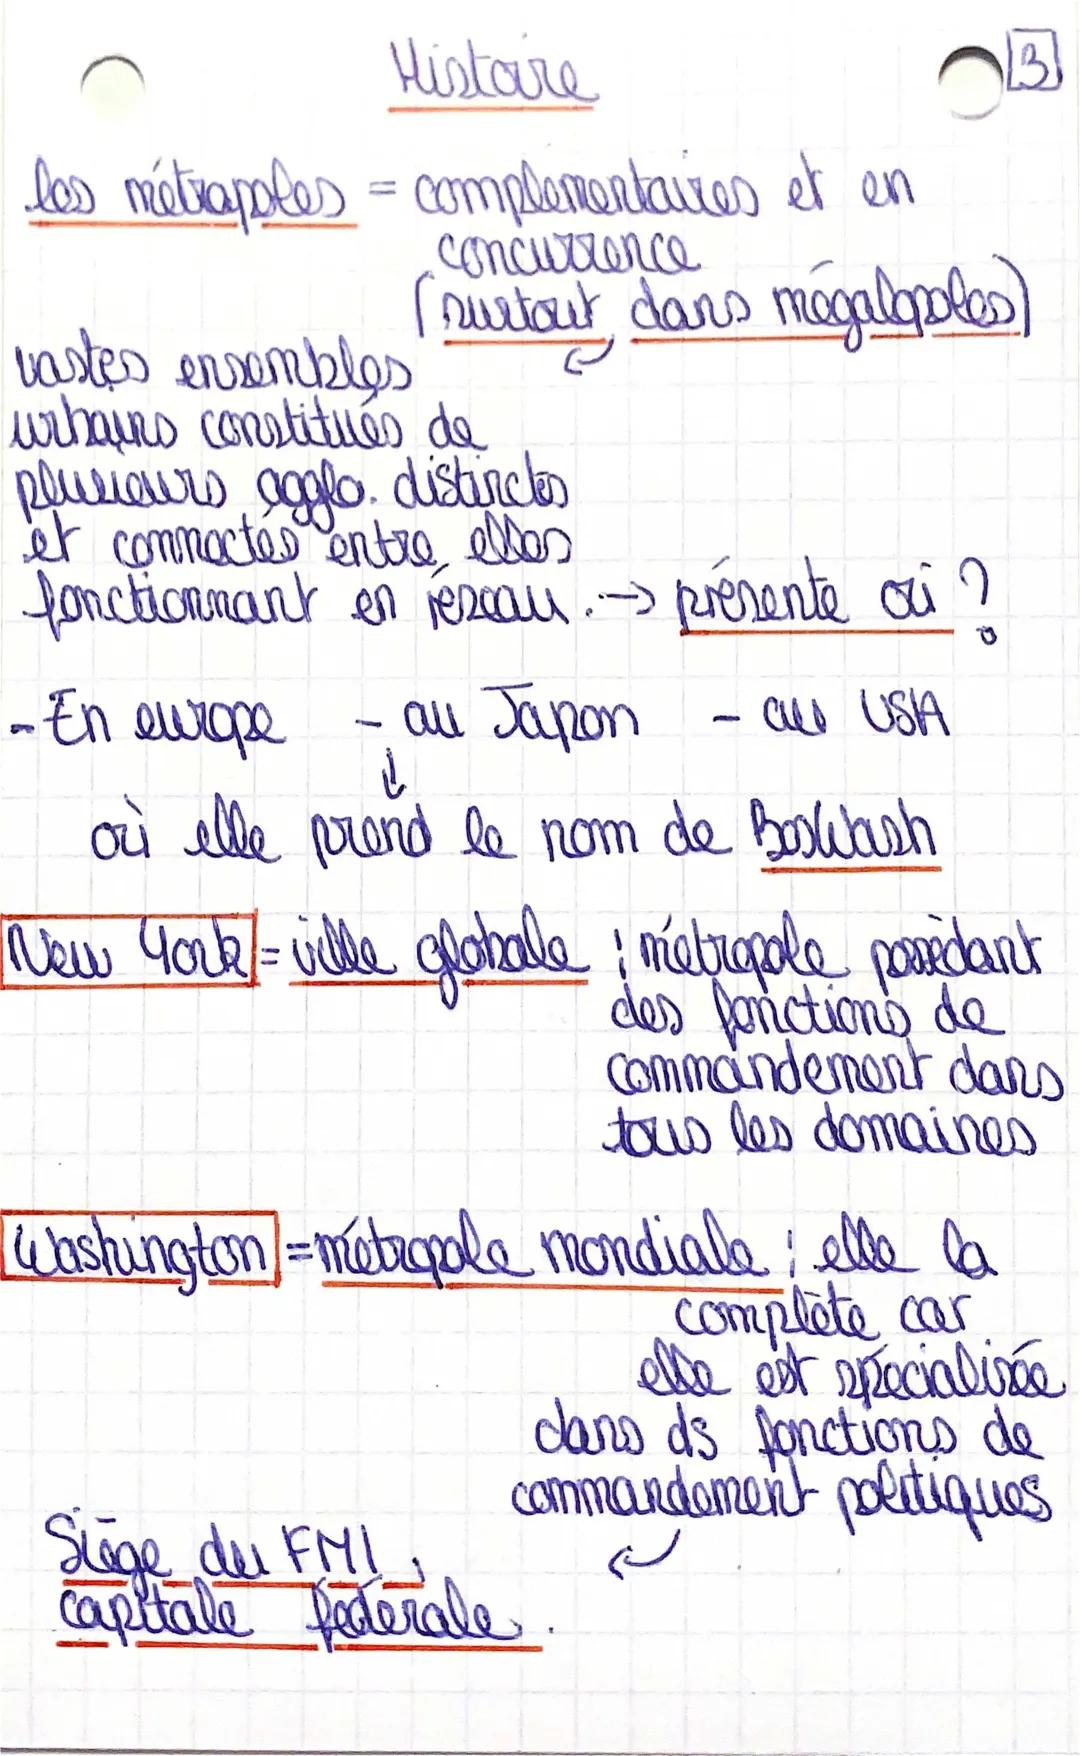 Histoire
3
les métropoles = complémentaires et en
concurrence
(surtout dans mégalopoles)
vastes ensembles
urbains constitués de
plusieurs agglo. distinctes
et connectés entre elles
fonctionnant en réseau. -> présente où ?
- En europe - au Japon - au USA
où elle prend le nom de BosWash
New York = ville globale ; métropole possèdant
des fonctions de
commandement dans
tous les domaines
Washington = métropole mondiale ; elle la
complète car
elle est spécialisée
dans ds fonctions de
commandement politiques
Siège du FMI,
capitale fédérale.